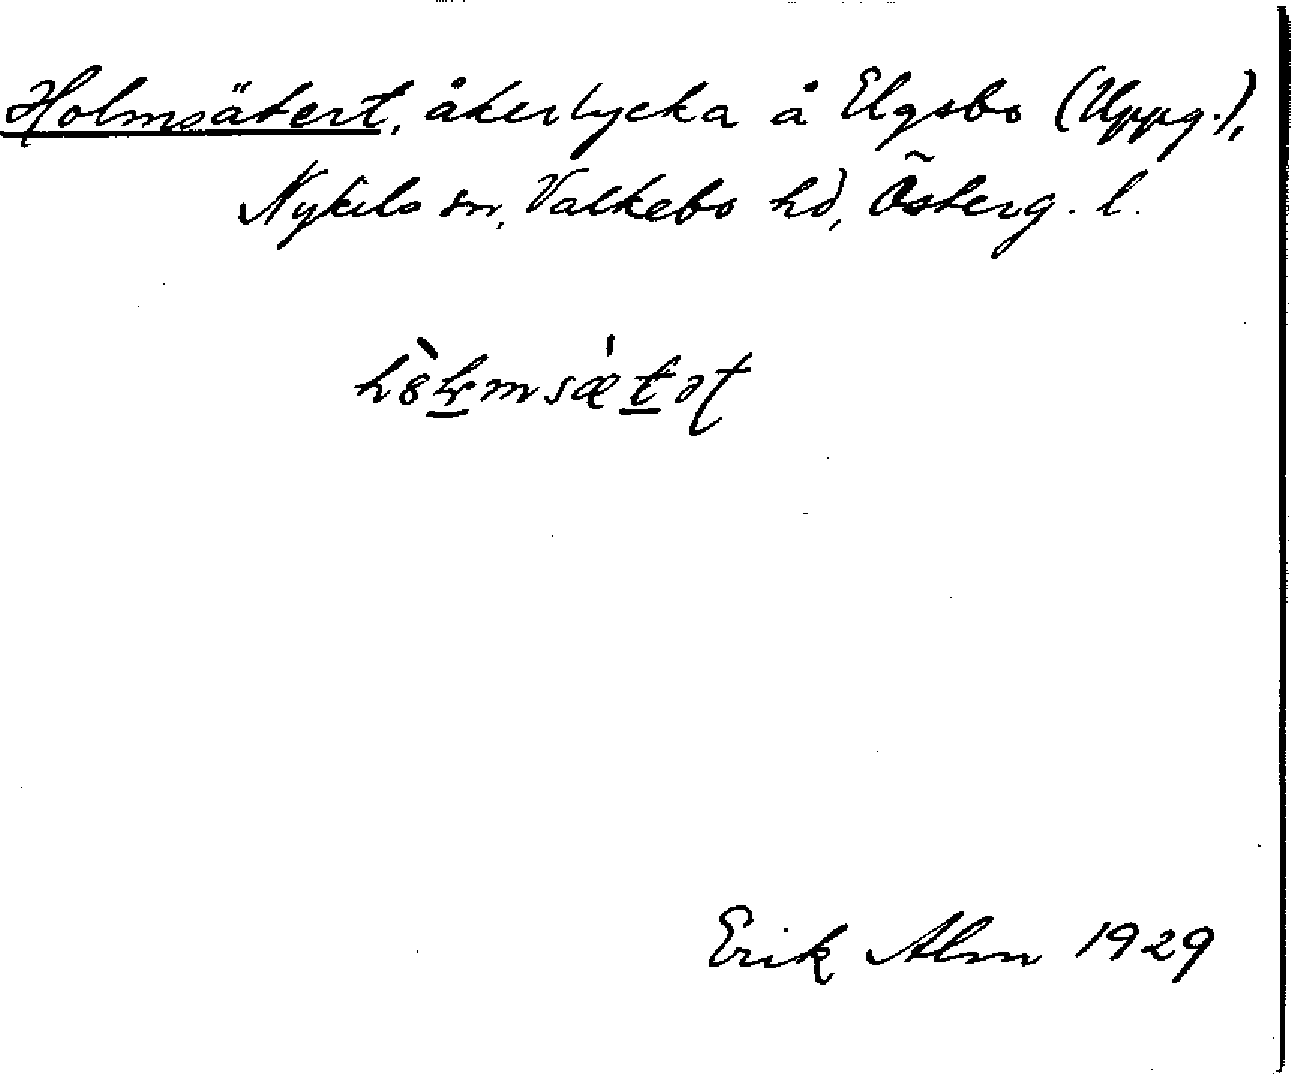 Holmsätert, åkerlycka å Elgsbo (Uppg.),
Nykils sn, Valkebo hd, Österg. l.
Erik Alm 1929